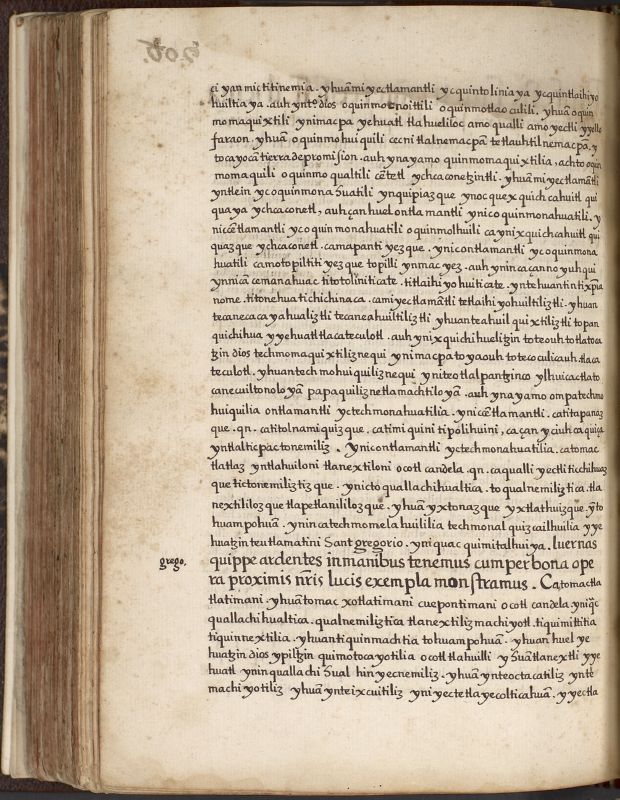 ci yan mictitinemia. yhuā mi yectlamantli yc quintolinia ya yc quintlaihiyo
huiltia ya. auh yn tº dios oquinmocnoittili oquinmotlaoculili. yhuā oquin
momaquixtili ynimacpa yehuatl tlahueliloc amo qualli amo yectli yyelle
faraon. yhuā oquinmohuiquili cecni tlalnemacpā tetlauhtilnemacpā. y
tocayocā tierra de promision. auh ynayamo quinmomaquixtilia, achto oquin
momaquili oquinmoqualtili cētetl ychcaconetzintli. yhuā mi yectlamātli
yntlein yc oquinmonahuatili ynquipiazque ynoc quexquich cahuitl qui
quaya ychcaconetl, auh çan huel ontlamantli ynic oquinmonahuatili. y
nic cētlamantli yc oquinmonahuatili oquinmolhuili ca yn ixquich cahuitl qui
quazque ychcaconetl. camapanti yezque. ynic ontlamantli yc oquinmona
huatili ca motopiltiti yezque topilli ynmac yez. auh yn in ca çanno yuhqui
yn nicā cemanahuac titotoliníticate. titlaihiyohuiticate. yntehuantin tixpīa
nome. titonehuatichichinaca. ca miyectlamātli tetlaihiyohuiltiliztli. yhuan
tecanecacayahualiztli tecaneahuiltiliztli yhuan teahuilquixtiliztli topan
quichihua yyehuatl tlacateculotl. auh yn ixquichihuelitzin toteouh totlatoca
tzin dios techmomaquixtiliznequi ynimacpa toyaouh totecocolicauh tlaca
teculotl. yhuan techmohuiquiliznequi yniteotlalpantzinco ylhuicactlato
canecuiltonoloyā papaquiliznetlamachtiloyā. auh ynayamo ompa techmo
huiquilia ontlamantli yc techmonahuatilia. ynic cētlamantli. ca titapanaz
que. qn. ca titolnamiquizque. ca timiquini tipolihuini, ca çan yciuhca quiça
yn tlalticpac tonemiliz. ynic ontlamantli yc techmonahuatilia. ca tomac
tlatlaz yn tlahuiloni tlanextiloni ocotl candela. qn. ca qualli yectli ticchihuaz
que tictonemiliztizque. ynicto quallachihualtica. toqualnemiliztica. tla
nextilozque tlapetlanililozque. yhuā yxtonazque yxtlathuizque. ȳto
huampohuā. yn in ca techmomelahuililia techmonalquizcailhuilia yye
huatzin teutlamatini Sant gregorio. yniquac quimitalhuiya. luernas
grego. quippe ardentes in manibus tenemus cum per bona ope
ra proximis nr̄is lucis exempla monstramus. Ca tomactla
tlatimani. yhuā tomac xotlatimani cuepontimani ocotl candela. yniq̄c
quallachihualtica. qualnemiliztica tlanextilizmachiyotl. tiquimittitia
tiquinnextilia. yhuan tiquinmachtia tohuampohuā. yhuan huel ye
huatzin dios ypiltzin quimotocayotilia ocotl tlahuilli yhuā tlanextli yye
huatl yn in quallachihual hin yecnemiliz. yhuā ynteoctacatiliz yntē
machiyotiliz yhuā ynteixcuitiliz yniyectetlayecolticahuā. yyectla